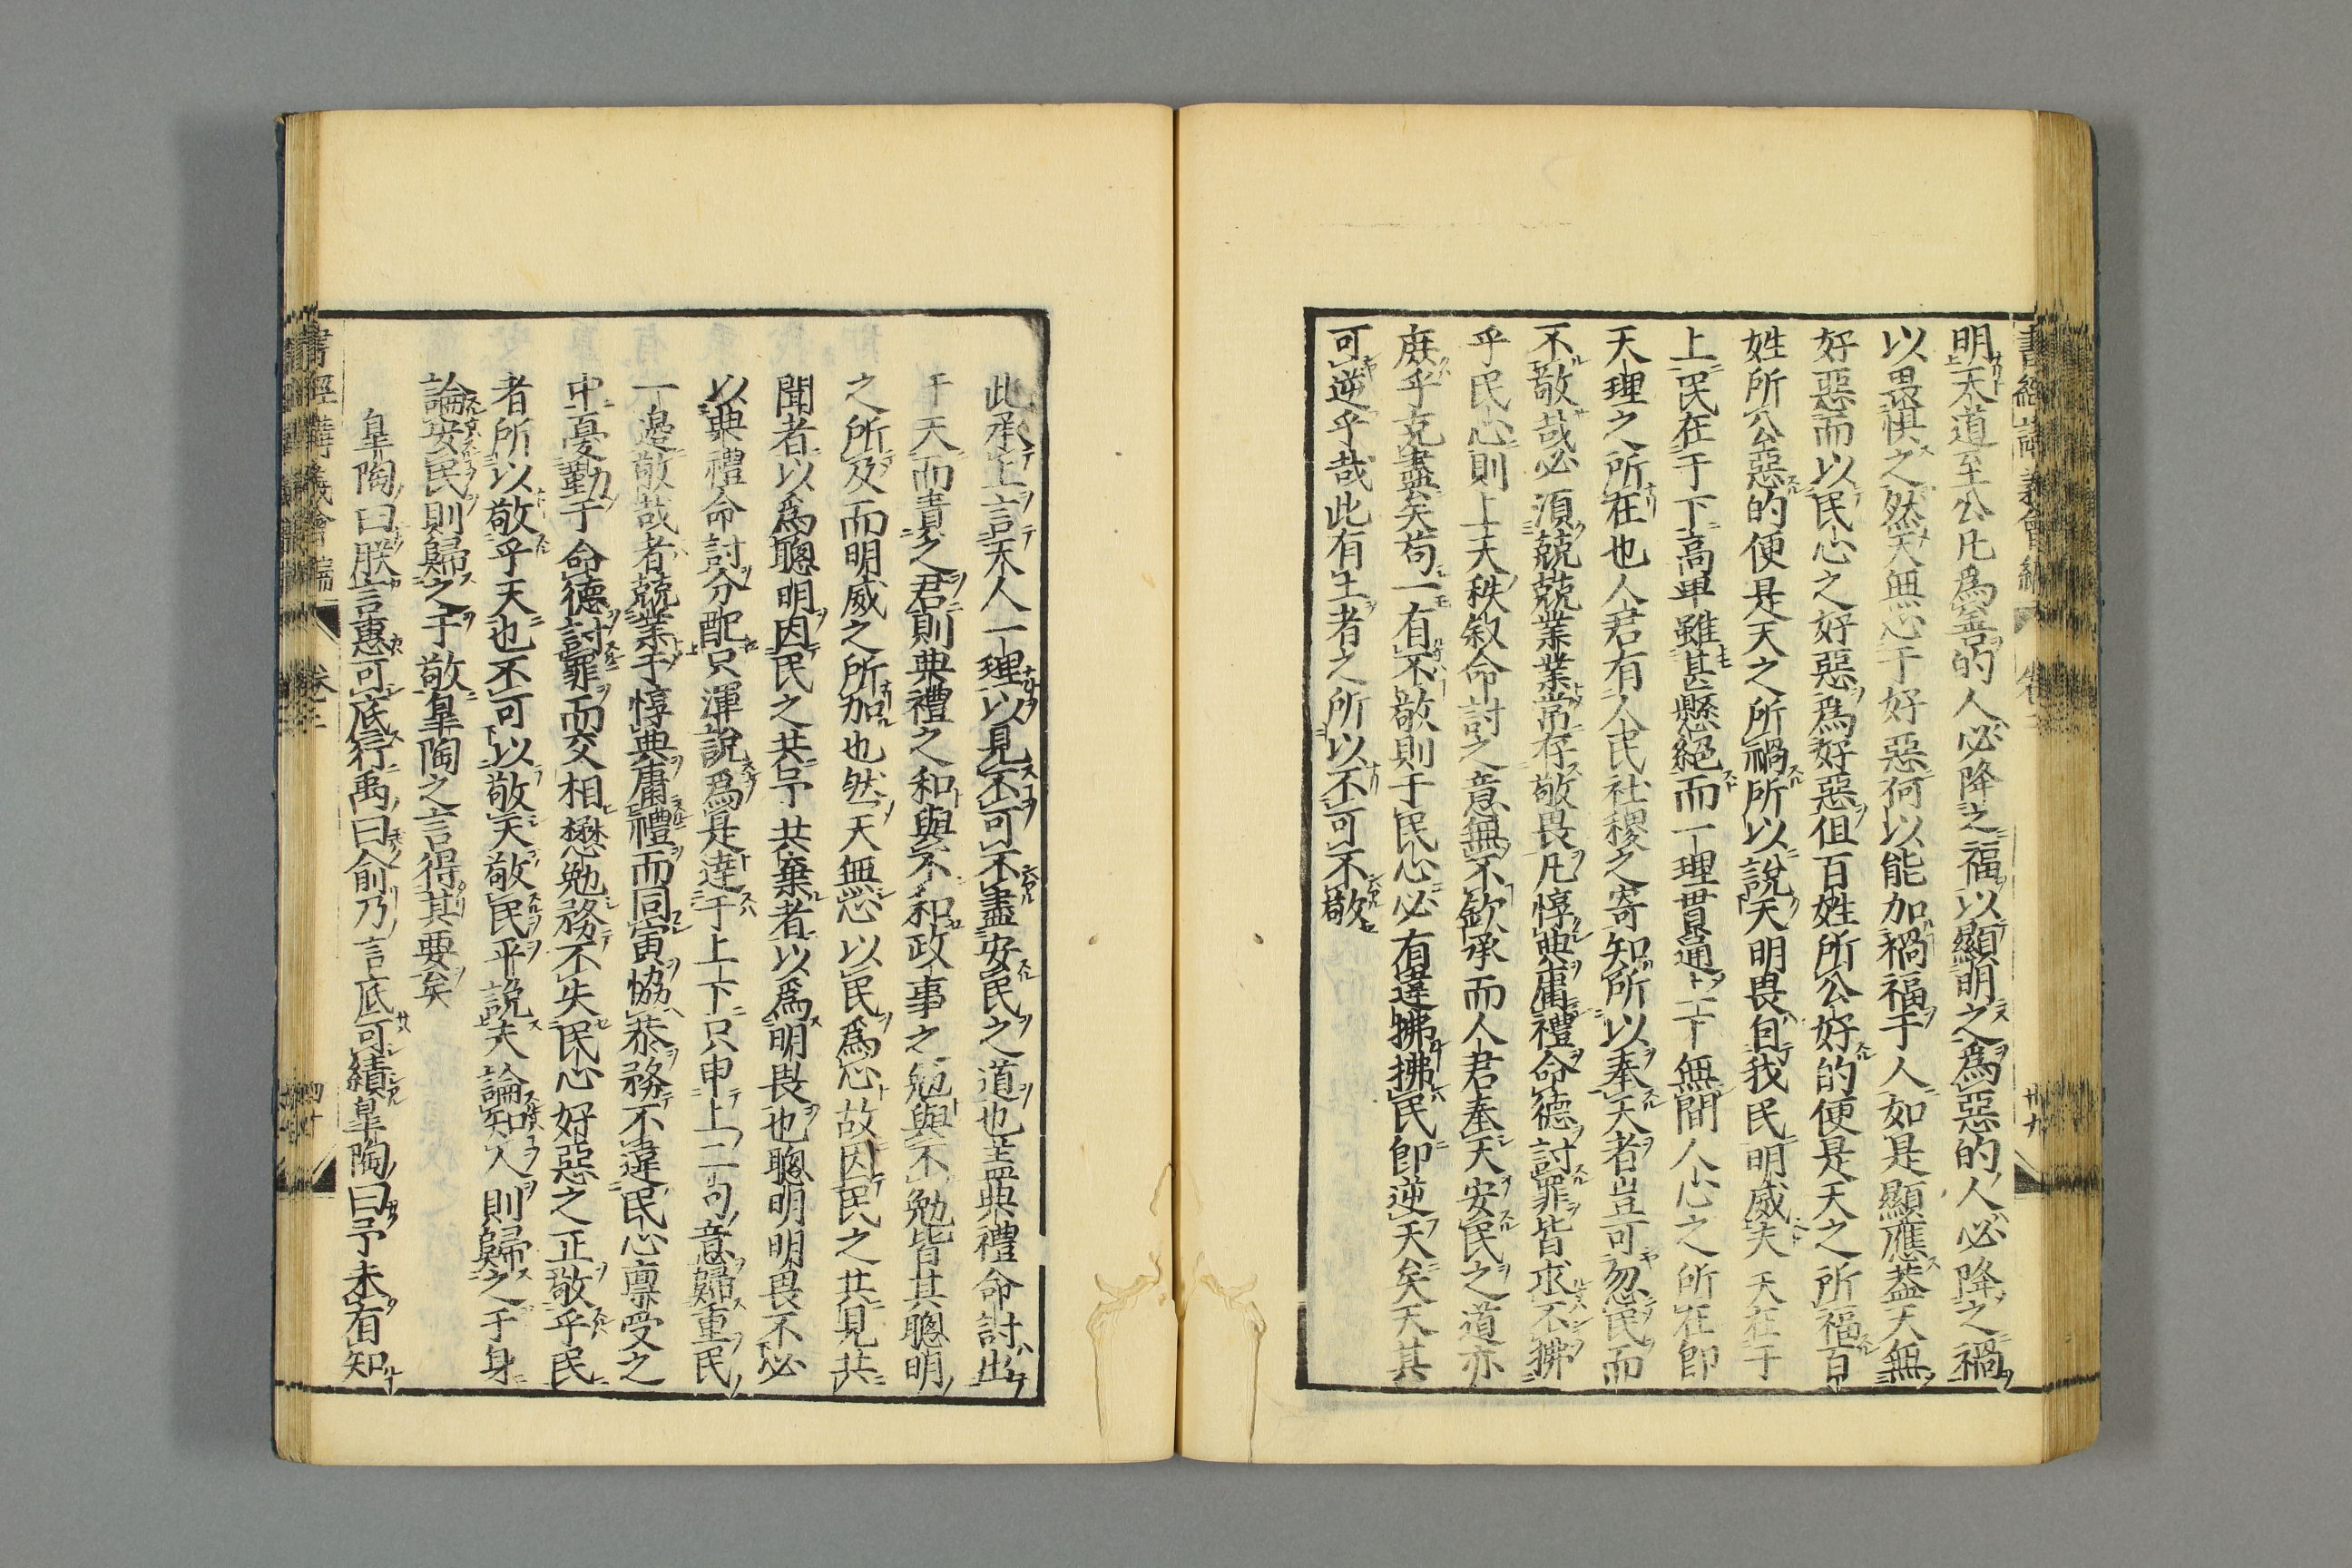 明天道至公凡爲善的人必降之福以顯明之爲惡的人必降之禍
以畏惧之然天無心于好惡何以能加禍福于人如是顯應蓋天無
好惡而以民心之好惡爲好惡但百姓所公好的便是天之所福百
姓所公惡的便是天之所禍所以說天明畏自我民明威夫天在于
上民在于下高卑雖甚懸絕而一理貫通上下無間人心之所在即
天理之所在也人君有人民社稷之寄知所以奉天者豈可忽民而
不敬哉必須兢兢業業常存敬畏凡惇典庸禮命德討罪皆求不拂
乎民心則上天秩敘命討之意無不欽承而人君奉天安民之道亦
庶乎克盡矣苟一有不敬則于民心必有違拂拂民即逆天矣天其
可逆乎哉此有土者之所以不可不敬
此承上言天人一理以見不可不盡安民之道也盖典禮命討出
于天而責之君則典禮之和與不和政事之勉與不勉皆其聰明
之所及而明威之所加也然天無心以民爲心故因民之共見共
聞者以爲聰明因民之共予共棄者以爲明畏也聰明明畏不必
以典禮命討分配只渾說爲是達于上下只申上二句意歸重民
一邊敬哉者兢業于惇典庸禮而同寅協恭務不違民心禀受之
中憂勤于命德討罪而交相懋勉務不失民心好惡之正敬乎民
者所以敬乎天也不可以敬天敬民平說夫論知人則歸之于身
論安民則歸之于敬皐陶之言得其要矣
皐陶曰朕言惠可底行禹曰俞乃言底可績皐陶曰予未有知
書經講義會編
卷之二
四十
書經講義會編
卷二
卅九